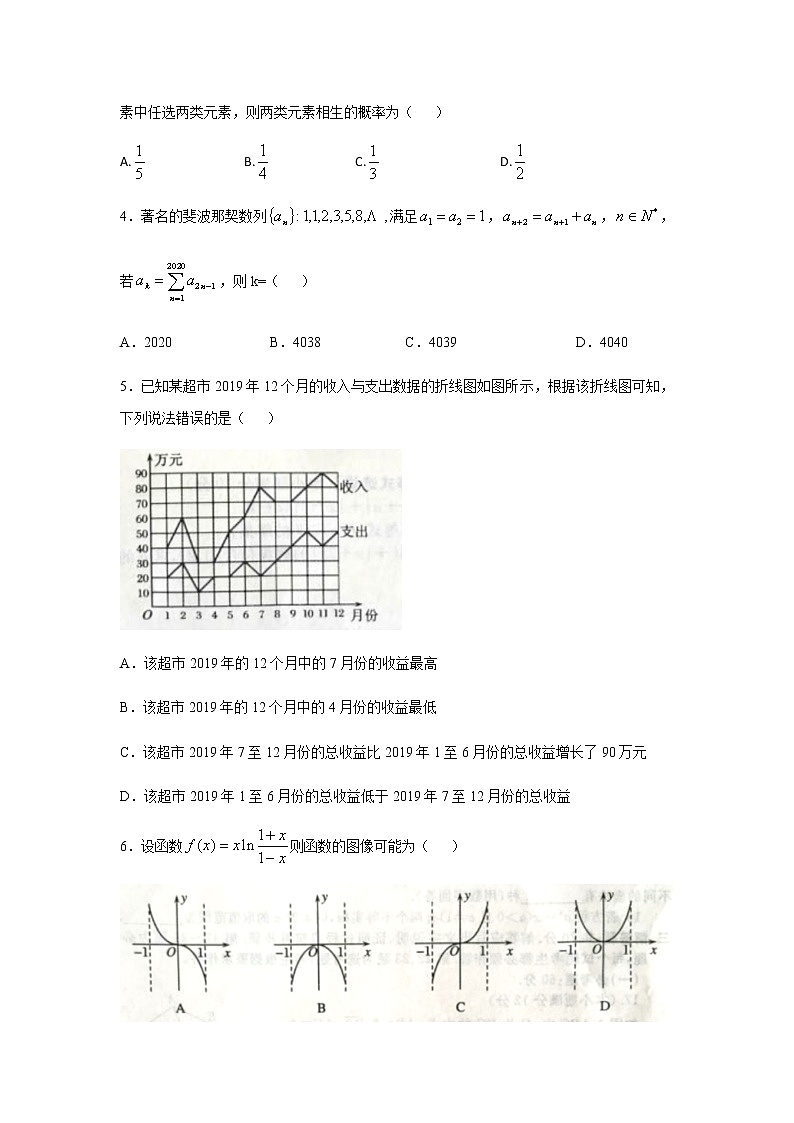 素中任选两类元素，则两类元素相生的概率为（ ）
A. 1/5 B. 1/4 C. 1/3 D. 1/2
4．著名的斐波那契数列{aₙ}: 1,1,2,3,5,8,Λ ,满足a₁ = a₂ = 1，aₙ₊₂ = aₙ₊₁ + aₙ，n ∈ N*，
若aₖ = ∑ₙ₌₁²⁰²⁰ a₂ₙ₋₁，则 k=（ ）
A．2020 B．4038 C．4039 D．4040
5．已知某超市 2019 年 12 个月的收入与支出数据的折线图如图所示，根据该折线图可知，
下列说法错误的是（ ）
万元
90
80
70
60
50
40
30
20
10
收入
支出
O 1 2 3 4 5 6 7 8 9 10 11 12 月份
A．该超市 2019 年的 12 个月中的 7 月份的收益最高
B．该超市 2019 年的 12 个月中的 4 月份的收益最低
C．该超市 2019 年 7 至 12 月份的总收益比 2019 年 1 至 6 月份的总收益增长了 90 万元
D．该超市 2019 年 1 至 6 月份的总收益低于 2019 年 7 至 12 月份的总收益
6．设函数 f(x) = x ln (1+x)/(1−x) 则函数的图像可能为（ ）
y y y y
-1 O 1 x -1 O 1 x -1 O 1 x -1 O 1 x
A B C D